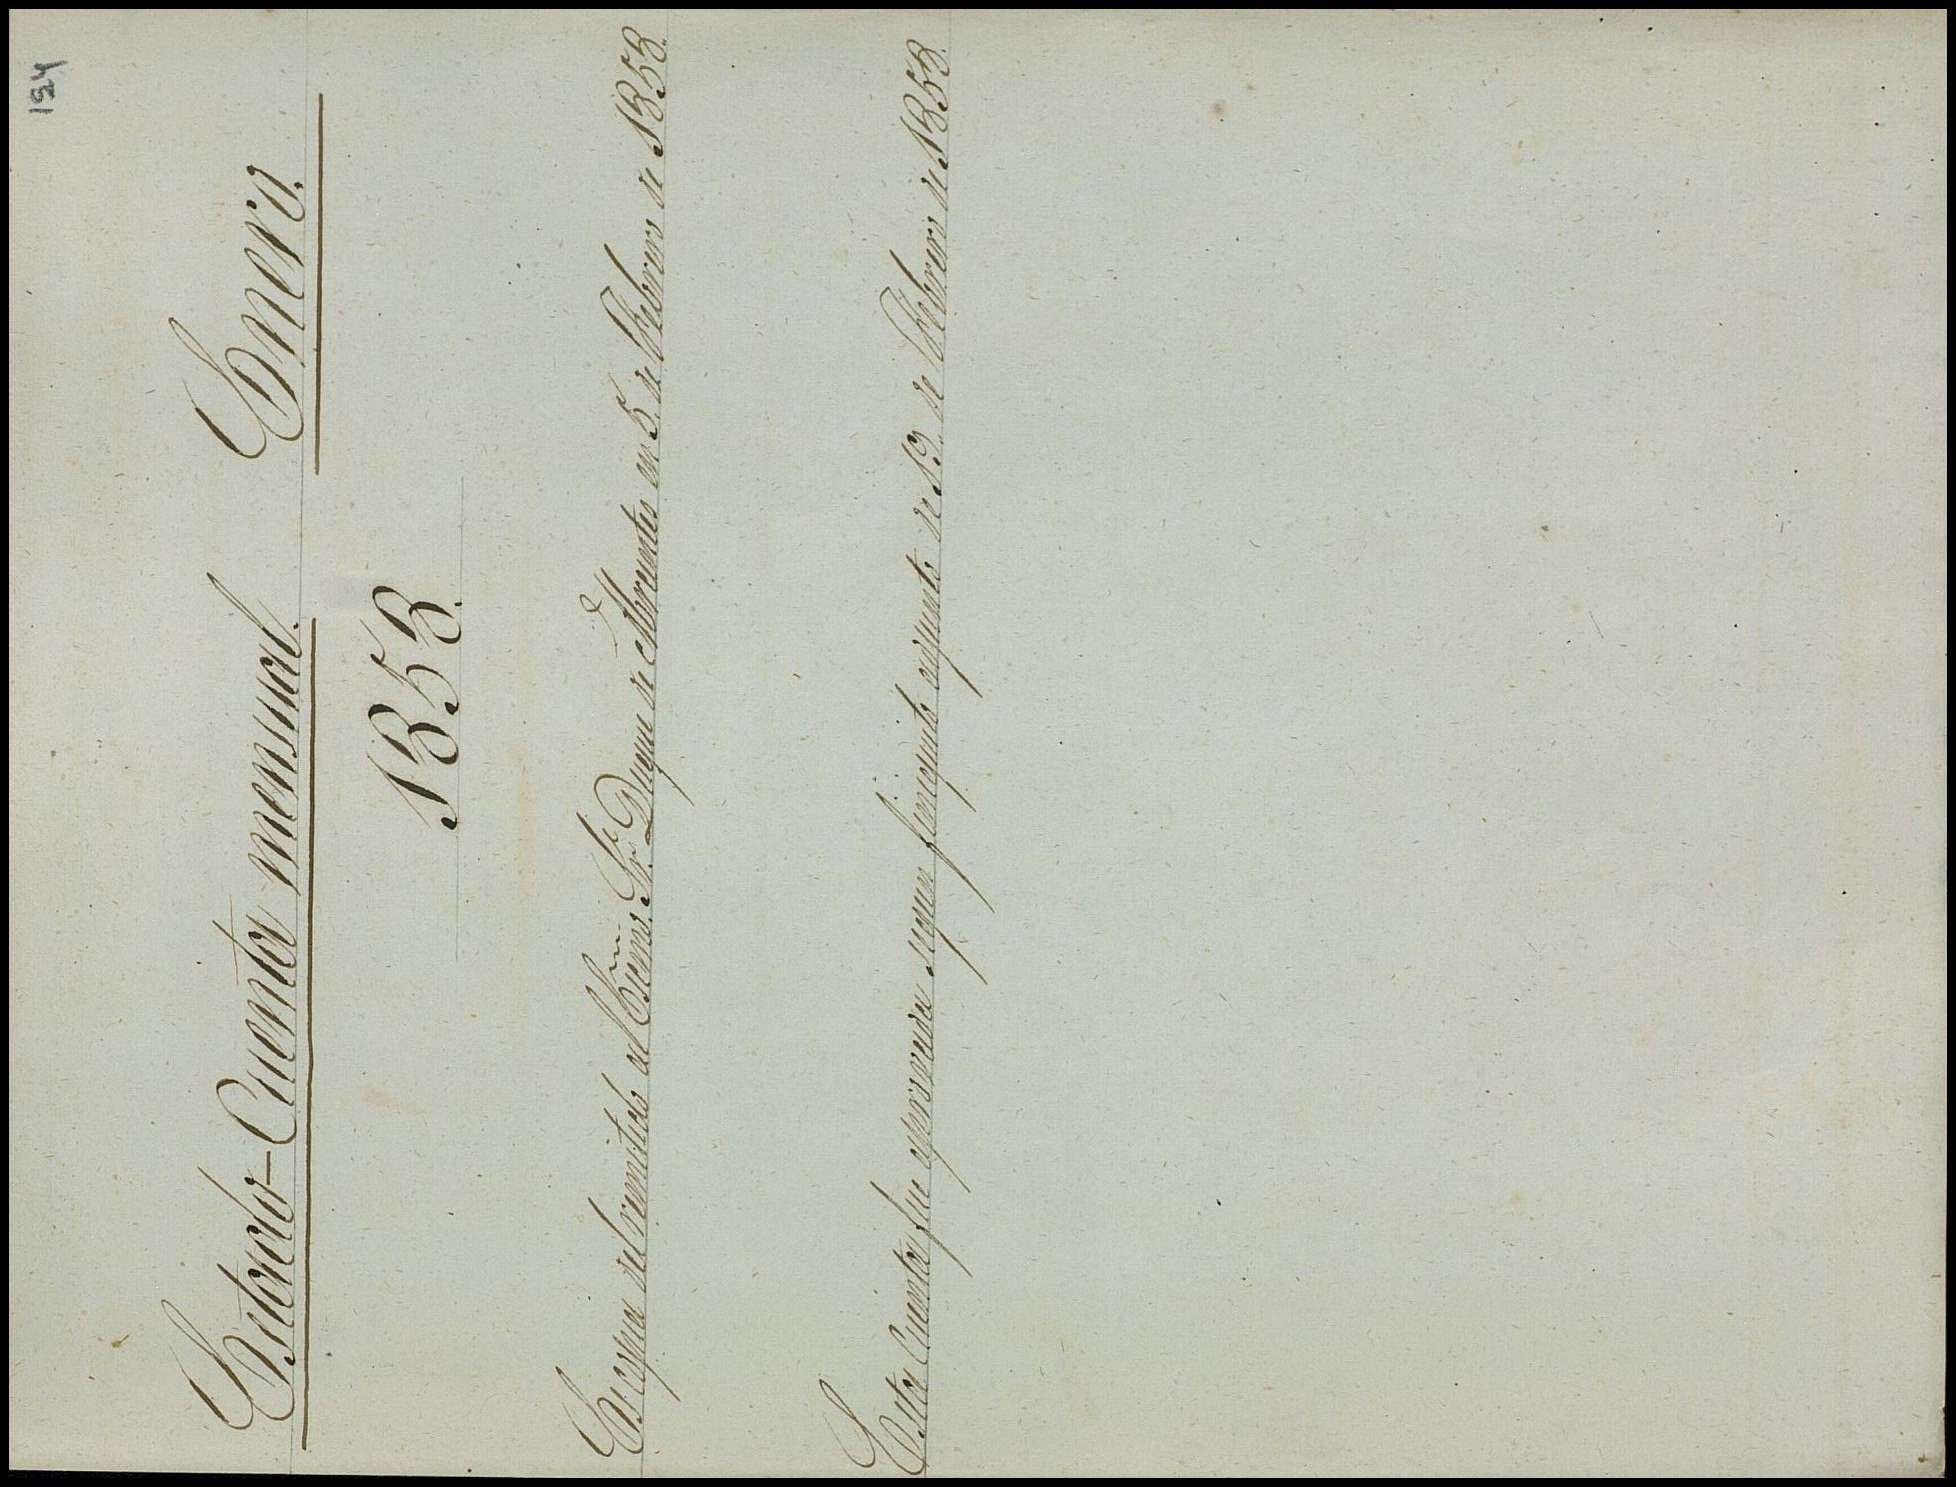 154
Estado-Cuenta mensual. Enero.
1858.
Es copia del remitido al Excmo. Sr. Duque de Abrantes en 5. de Febrero de 1858.
Esta Cuenta fue aprovada segun finiquito adjunto de 19. de Febrero de 1858.